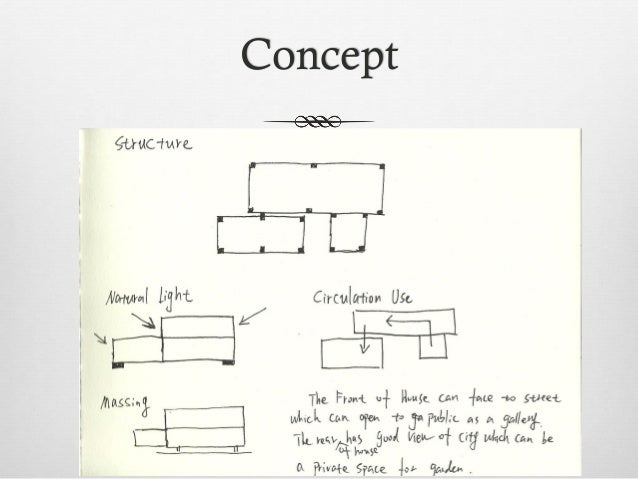 Concept
Structure
Natural Light
Circulation Use
Massing
The Front of House can face to street
which can open to public as a gallery.
The rear of house has good view of city which can be
a private space for garden.